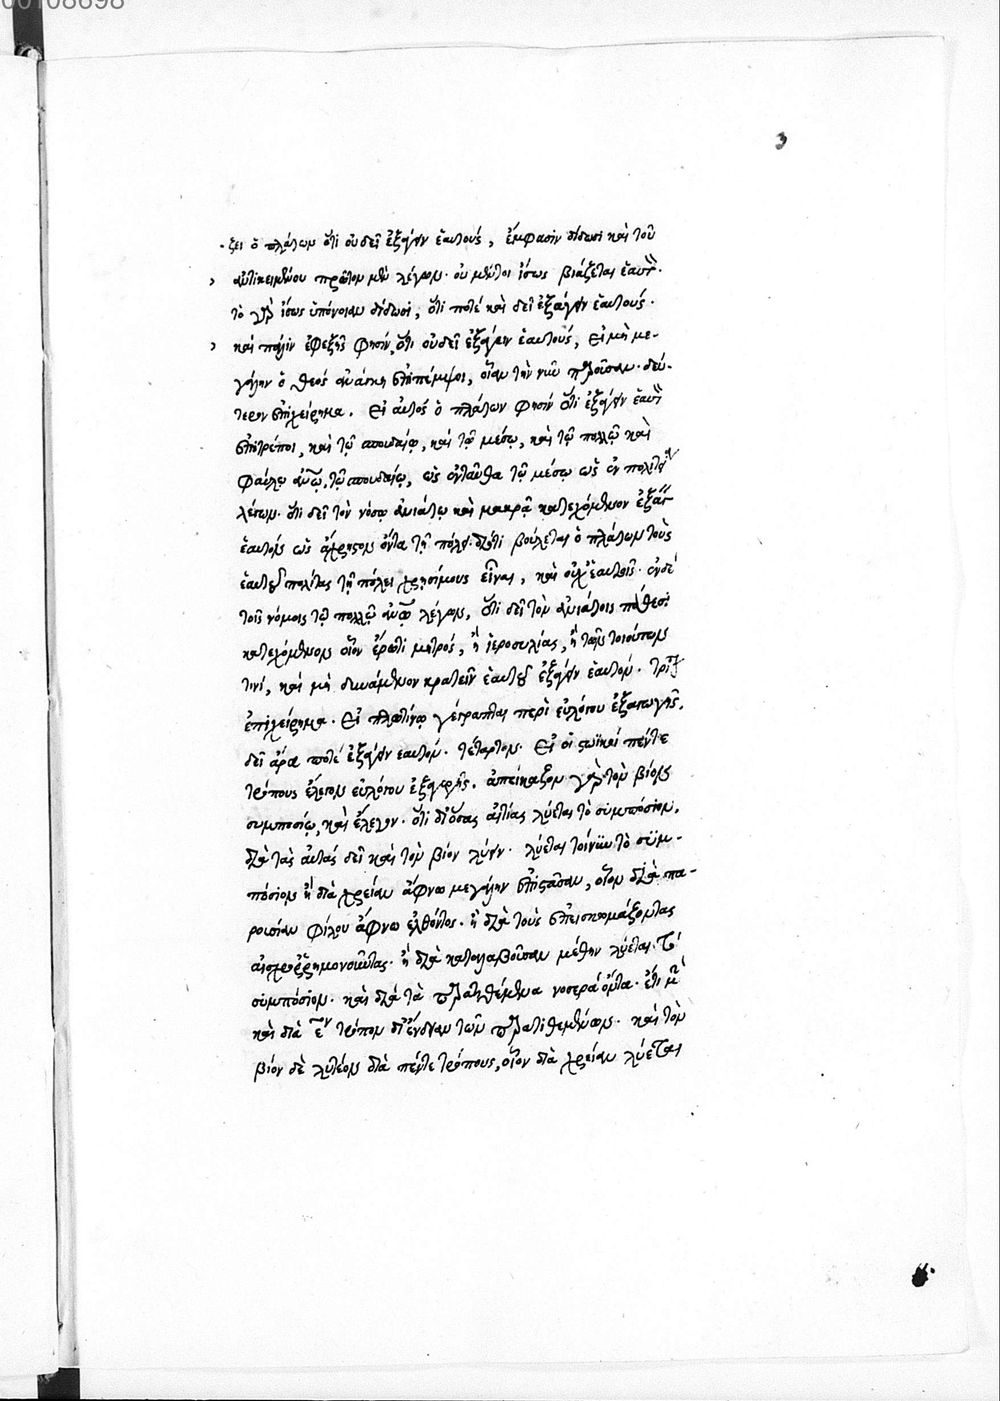 00108698
3
ξει ὁ πλάτων ὅτι οὐ δεῖ ἐξάγειν ἑαυτούς, ἔμφασιν δίδωσι καὶ τοῦ
ἀντικειμένου πρῶτον μὲν λέγων· οὐ μέντοι ἴσως βιάζεται ἑαυτόν·
τὸ γὰρ ἴσως ὑπόνοιαν δίδωσι, ὅτι ποτέ καὶ δεῖ ἐξάγειν ἑαυτούς·
καὶ πάλιν ἐφεξῆς φησίν, ὅτι οὐ δεῖ ἐξάγειν ἑαυτούς, εἰ μὴ με-
γάλην ὁ θεός ἀνάγκη ἐπιπέμψοι, οἵαν τὴν νῦν παροῦσαν· δεύ-
τερον ἐπιχείρημα. εἰ αὐτός ὁ πλάτων φησίν ὅτι ἐξάγειν ἑαυτ
ἐπιτρέποι, καὶ τῷ σπουδαίῳ, καὶ τῷ μέσῳ, καὶ τῷ πολλῷ καὶ
φαύλῳ ἀνῷ, τῷ σπουδαίῳ, ὡς ἐνταῦθα τῷ μέσῳ ὡς ἐν πολιτεί
λέγων· ὅτι δεῖ τὸν νόσῳ ἀνιάτῳ καὶ μακρᾷ κατεχόμενον ἐξάγ
ἑαυτὸν ὡς ἄχρηστον ὄντα τῇ πόλει· διότι βούλεται ὁ πλάτων τοὺς
ἑαυτοῦ πολίτας τῇ πόλει χρησίμους εἶναι, καὶ οὐχ ἑαυτοῖς· ἐν δέ
τοῖς νόμοις τῷ πολλῷ ἀνῷ λέγων, ὅτι δεῖ τὸν ἀνιάτοις πάθεσι
κατεχόμενον οἷον ἔρωτι μητρός, ἢ ἱεροσυλίας, ἤ τινι τοιούτων
τινί, καὶ μὴ δυνάμενον κρατεῖν ἑαυτοῦ ἐξάγειν ἑαυτόν. τρίτον
ἐπιχείρημα. εἰ πλωτίνῳ γέγραπται περὶ εὐλόγου ἐξαγωγῆς,
δεῖ ἄρα ποτέ ἐξάγειν ἑαυτόν. τέταρτον. εἰ οἱ στωϊκοί πέντε
τρόπους ἔλεγον εὐλόγου ἐξαγωγῆς. ἀπείκαζον γὰρ τὸν βίον
συμποσίῳ, καὶ ἔλεγον· ὅτι δι' ὅσας αἰτίας λύεται τὸ συμπόσιον,
διὰ τὰς αὐτάς δεῖ καὶ τὸν βίον λύειν. λύεται τοίνυν τὸ συμ-
πόσιον ἢ διὰ χρείαν ἄφνω μεγάλην ἐπιστᾶσαν, οἷον διὰ πα-
ρουσίαν φίλου ἄφνω ἐλθόντος. ἢ διὰ τοὺς ἐπεισκωμάζοντας
αἰσχρορρημονοῦντας. ἢ διὰ καταλαβοῦσαν μέθην λύεται τό
συμπόσιον. καὶ διά τὰ παρατιθέμενα νοσερά ὄντα. ἔτι μὴν
καὶ διὰ ε τρόπον δι' ἔνδειαν τῶν παρατιθεμένων. καὶ τὸν
βίον δὲ λυτέον διὰ πέντε τρόπους, οἷον διὰ χρείαν λύεται